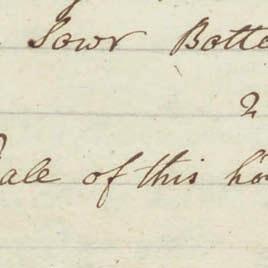 Sowr Botto
2
ale of this ho